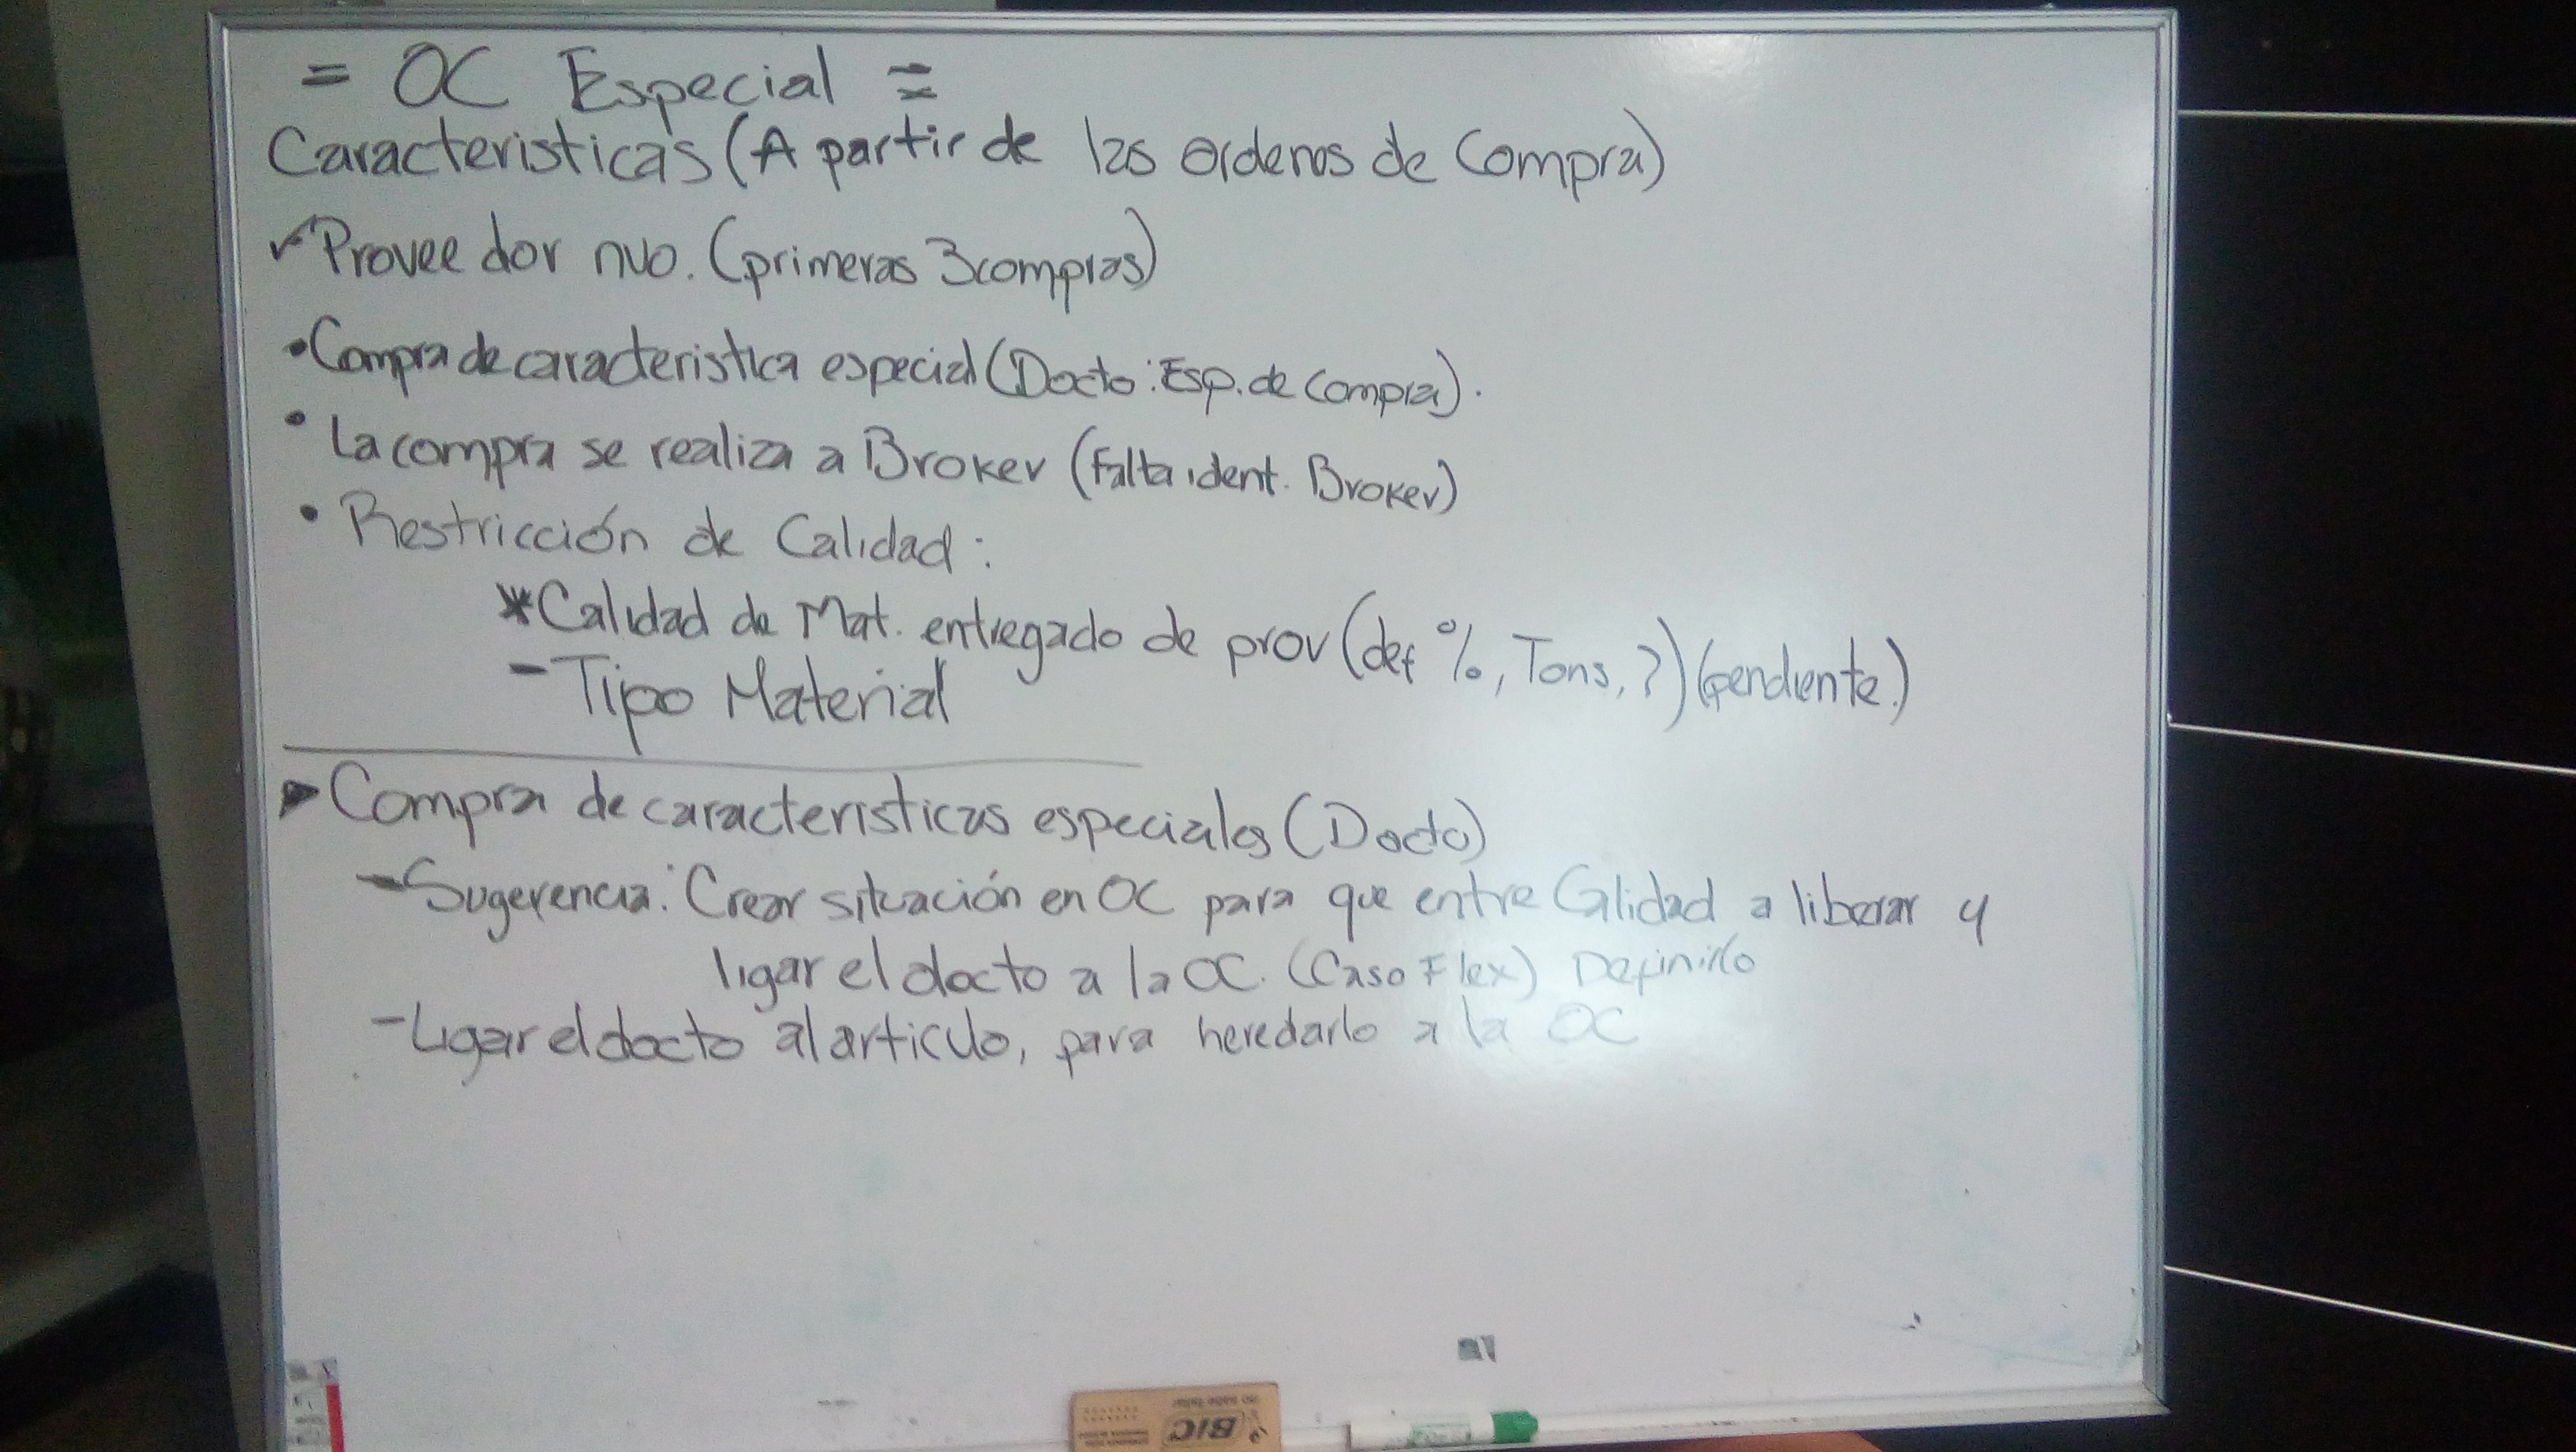 = OC Especial =
Caracteristicas (A partir de las ordenes de Compra)
✓ Proveedor nvo. (primeras 3 compras)
• Compra de caracteristica especial (Docto: Esp. de Compra).
• La compra se realiza a Broker (falta ident. Broker)
• Restricción de Calidad:
* Calidad de Mat. entregado de prov (def %, Tons, ?) (pendiente.)
- Tipo Material
▶ Compra de caracteristicas especiales (Docto)
- Sugerencia: Crear situación en OC para que entre Calidad a liberar y
ligar el docto a la OC. (Caso Flex) Definirlo
- Ligar el docto al articulo, para heredarlo a la OC
BIC